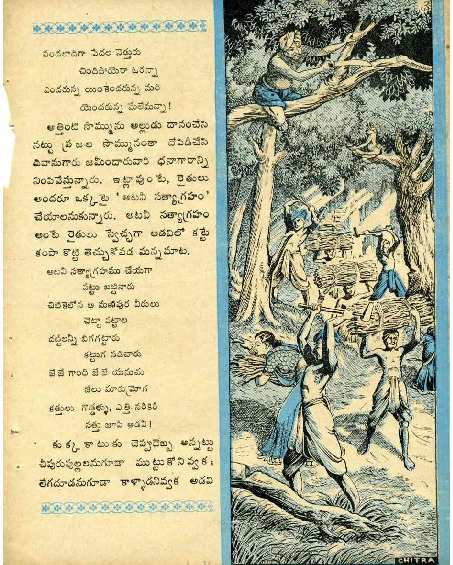 వందలాదిగా పేదల నెత్తురు
చిందిపోయెరా ఓరన్నా
ఎందరున్న యింకెందరున్న మరి
యెందరున్న మేలేమన్నా!
అత్తింటి సొమ్మును అల్లుడు దానంచేసి
నట్టు ప్రజల సొమ్మునంతా దోపిడిచేసి
దివానుగారు జమీందారువారి ధనాగారాన్ని
నింపివేస్తున్నారు. ఇట్లావుంటే, రైతులు
అందరూ ఒక్కటై 'అటవీ సత్యాగ్రహం'
చేయాలనుకున్నారు. అటవీ సత్యాగ్రహం
అంటే రైతులు స్వేచ్ఛగా అడవిలో కట్టె
కంపా కొట్టి తెచ్చుకోవడ మన్నమాట.
అటవీ సత్యాగ్రహము చేయగా
పట్టు బట్టినారు
చిటికెలోన ఆ మణిపుర వీరులు
చెట్టా పట్టాల
దన్నులన్ని బిగగట్టారు
కట్టుగ నడిచారు
జేజే గాంధి జేజే యనుచు
జేలు మారుమ్రోగ
కత్తులు గొడ్డళ్ళు, ఎత్తి నరికిరి
సత్తు జూపి అడవి!
కుక్క కాటుకు చెప్పుదెబ్బ అన్నట్టు
చిపురుపుల్లలనుగూడా ముట్టుకోనివ్వక
లేగదూడనుగూడా కాళ్ళూడనివ్వక అడవి
CHITRA